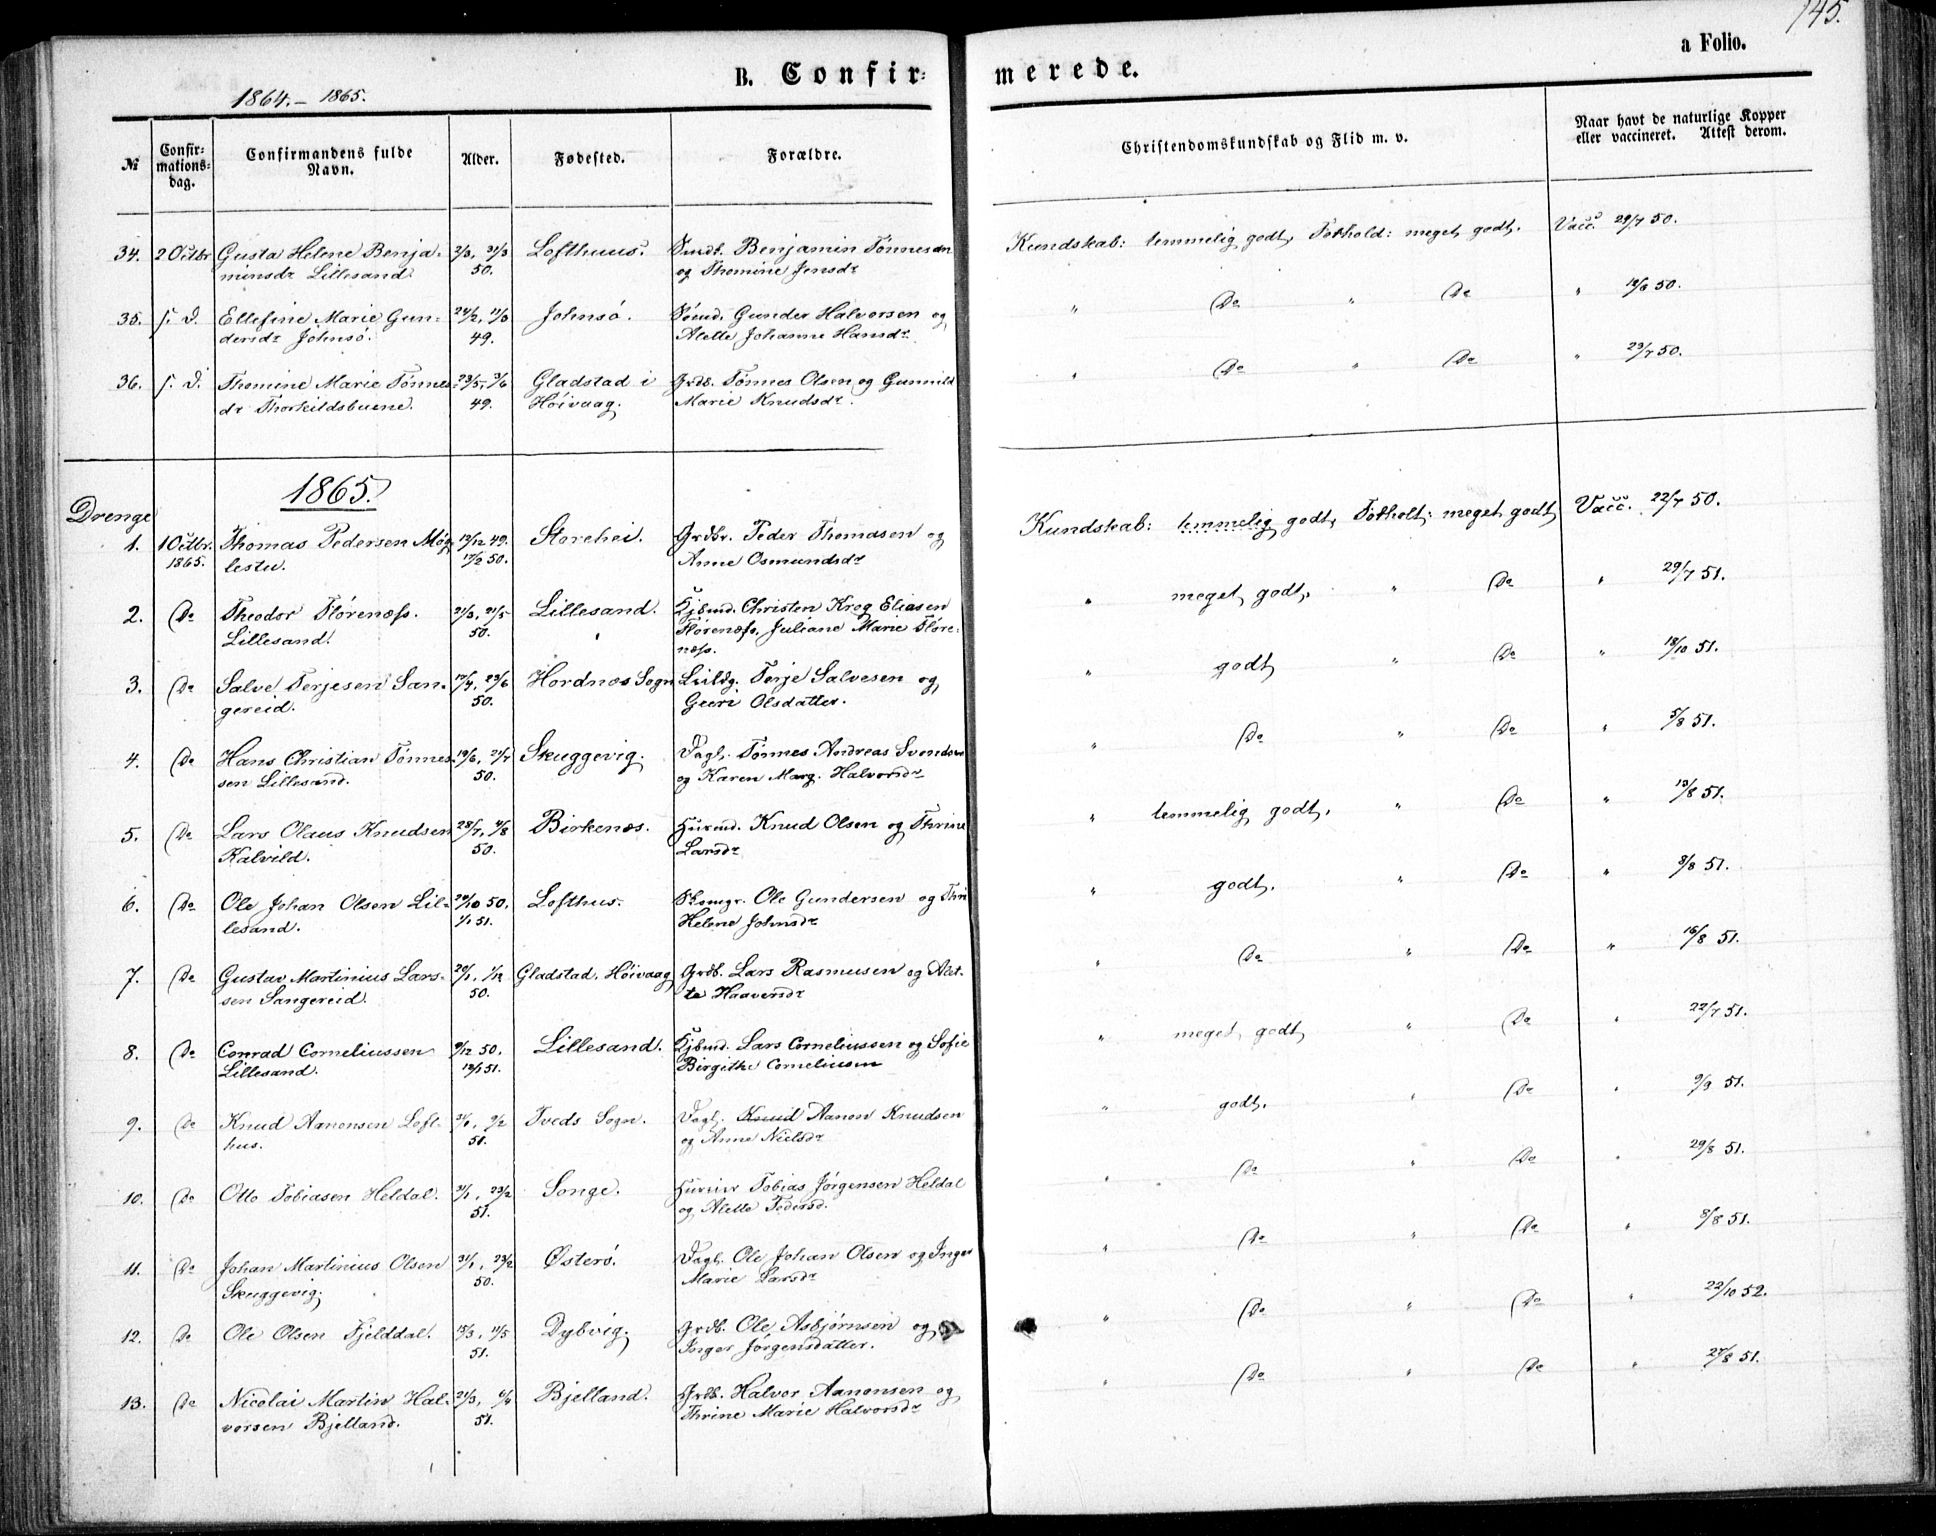 145.
a Folio.
B. Confir= merede.
1864.- 1865.
№
Confir=
mations-
dag.
Confirmandens fulde
Navn.
Alder.
Fødested.
Forældre.
Christendomskundskab og Flid m. v.
Naar havt de naturlige Kopper
eller vaccineret. Attest derom.
34. 2 Octbr Gusta Helene Benja- 2/3, 31/3 Lofthuus. Smdb. Benjamin Tønnesen Kundskab: temmelig godt, Forhold: meget godt. Vacc. 29/7 50.
minsdr Lillesand 50. og Thomine Jensdr
35. s. d. Ellefine Marie Gun- 24/2, 11/3 Johnsö. Sömd. Gunder Halvorsen og " Do " Do " 18/8 50.
dersdr Johnsö. 49. Alette Johanne Hansdr
36. s. d. Thomine Marie Tønnes- 23/5, 3/6 Gladstad i Grdb. Tønnes Olsen og Gunnild " Do " Do " 23/7 50.
dr Thorkildsbuene. 49. Höivaag. Marie Knudsdr.
1865.
Drenge
1. 1 Octbr. Thomas Pedersen Møg- 13/12 49. Storehei. Grdbr. Peder Thomasen og Kundskab: temmelig godt, Forholt: meget godt, Vacc. 22/7 50.
1865. lestu. 17/2 50. Anne Osmundsdr
2. Do Theodor Flørenæss. 21/3, 21/5 Lillesand. Kjbmd. Christen Krog Eliasen " meget godt, " Do " 29/7 51.
Lillesand. 50. Flørenæss, Juliane Marie Fløre-
næss.
3. Do Salve Terjesen San- 17/4, 23/6 Hordnæs Sogn Leildg. Terje Salvesen og " godt " Do " 18/10 51.
gereid. 50. Geeri Olsdatter.
4. Do Hans Christian Tønnes- 19/6, 21/7 Skuggevig. Dagl. Tønnes Andreas Svendsen " Do " Do " 5/8 51.
sen Lillesand. 50. og Karen Marg. Halvorsdr
5. Do Lars Olaus Knudsen 28/7, 4/8 Birkenæs. Huusmd. Knud Olsen og Thrine " temmelig godt, " Do " 13/8 51.
Kalvild. 50. Larsdr
6. Do Ole Johan Olsen Lil- 20/10 50, Lofthus. Skomgr. Ole Gundersen og Thri " godt. " Do " 8/8 51.
lesand. 1/1 51. Helene Johnsdr
7. Do Gustav Martinius Lars- 20/1, 1/12 Gladstad. Höivaag Grdb. Lars Rasmusen og Alet- " Do " Do " 16/8 51.
sen Sangereid. 50. te Haavorsdr
8. Do Conrad Corneliussen 9/12 50. Lillesand. Kjbmd. Lars Corneliussen og Sofie " meget godt, " Do " 22/7 51.
Lillesand. 12/1 51. Birgithe Corneliusen
9. Do Knud Aanonsen Loft- 3/1, 9/2 Tveds Sogn. Dagl. Knud Aanon Knudsen " godt. " Do " 9/9 51.
hus. 51. og Anne Nielsdr
10. Do Otto Tobiasen Heldal. 31/1, 23/2 Songe. Huusier Tobias Jörgensen Heldal " Do " Do " 29/8 51.
51. og Alette Pedersd.
11. Do Johan Martinius Olsen 31/1, 23/2 Østerö. Dagl. Ole Johan Olsen og Inger " Do " Do " 8/8 51.
Skuggevig. 50. Marie Larsdr
12. Do Ole Olsen Fjelddal. 15/3, 11/5 Dybvig. Grdb. Ole Asbjørnsen og " Do " Do " 22/10 52.
51. Inger Jørgensdatter.
13. Do Nicolai Martin Hal- 21/3, 4/4 Bjelland. Grdb. Halvor Aanonsen og " Do " Do " 27/8 51.
vorsen Bjelland. 51. Thrine Marie Halvorsdr